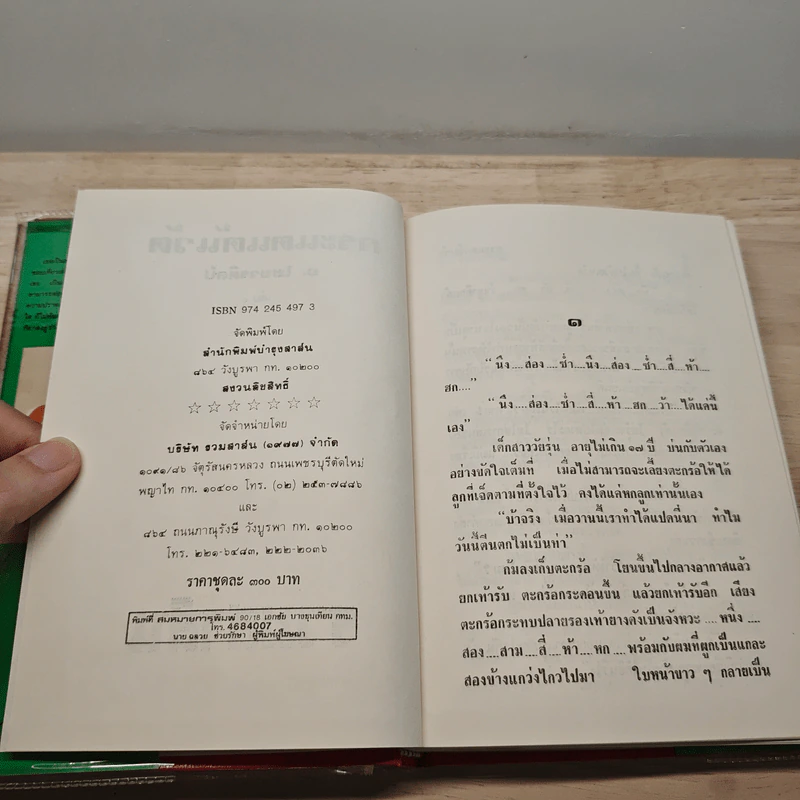 ISBN 974 245 497 3
จัดพิมพ์โดย
สำนักพิมพ์บำรุงสาส์น
๘๖๔ วังบูรพา กท. ๑๐๒๐๐
สงวนลิขสิทธิ์
☆ ☆ ☆ ☆ ☆ ☆ ☆
จัดจำหน่ายโดย
บริษัท รวมสาส์น (๑๙๗๗) จำกัด
๑๐๙๑/๘๖ จัตุรัสนครหลวง ถนนเพชรบุรีตัดใหม่
พญาไท กท. ๑๐๔๐๐ โทร. (๐๒) ๒๕๓-๗๘๘๖
และ
๘๖๔ ถนนภาณุรังษี วังบูรพา กท. ๑๐๒๐๐
โทร. ๒๒๑-๖๔๘๓, ๒๒๒-๒๐๓๖
ราคาชุดละ ๓๐๐ บาท
พิมพ์ที่ สมหมายการพิมพ์ 90/18 เอกชัย บางขุนเทียน กทม.
โทร. 4684007
นาย ฉลวย ช่วยรักษา ผู้พิมพ์ผู้โฆษณา
๑
“ นึง....ส่อง....ซ่ำ....นึง....ส่อง....ซ่ำ....สี่....ห้า....
ฮก....”
“ นึง....ส่อง....ซ่ำ....สี่....ห้า....ฮก....ว้า....ได้แค่นี้
เอง”
เด็กสาววัยรุ่น อายุไม่เกิน ๑๗ ปี บ่นกับตัวเอง
อย่างขัดใจเต็มที่ เมื่อไม่สามารถจะเลี้ยงตะกร้อให้ได้
ลูกที่เจ็ดตามที่ตั้งใจไว้ คงได้แค่หกลูกเท่านั้นเอง
“บ้าจริง เมื่อวานนี้เราทำได้แปดนี่นา ทำไม
วันนี้ตีนตกไม่เป็นท่า”
ก้มลงเก็บตะกร้อ โยนขึ้นไปกลางอากาศแล้ว
ยกเท้ารับ ตะกร้อกระดอนขึ้น แล้วยกเท้ารับอีก เสียง
ตะกร้อกระทบปลายรองเท้ายางดังเป็นจังหวะ....หนึ่ง....
สอง....สาม....สี่....ห้า....หก....พร้อมกับผมที่ผูกเป็นแกละ
สองข้างแกว่งไกวไปมา ใบหน้าขาว ๆ กลายเป็น